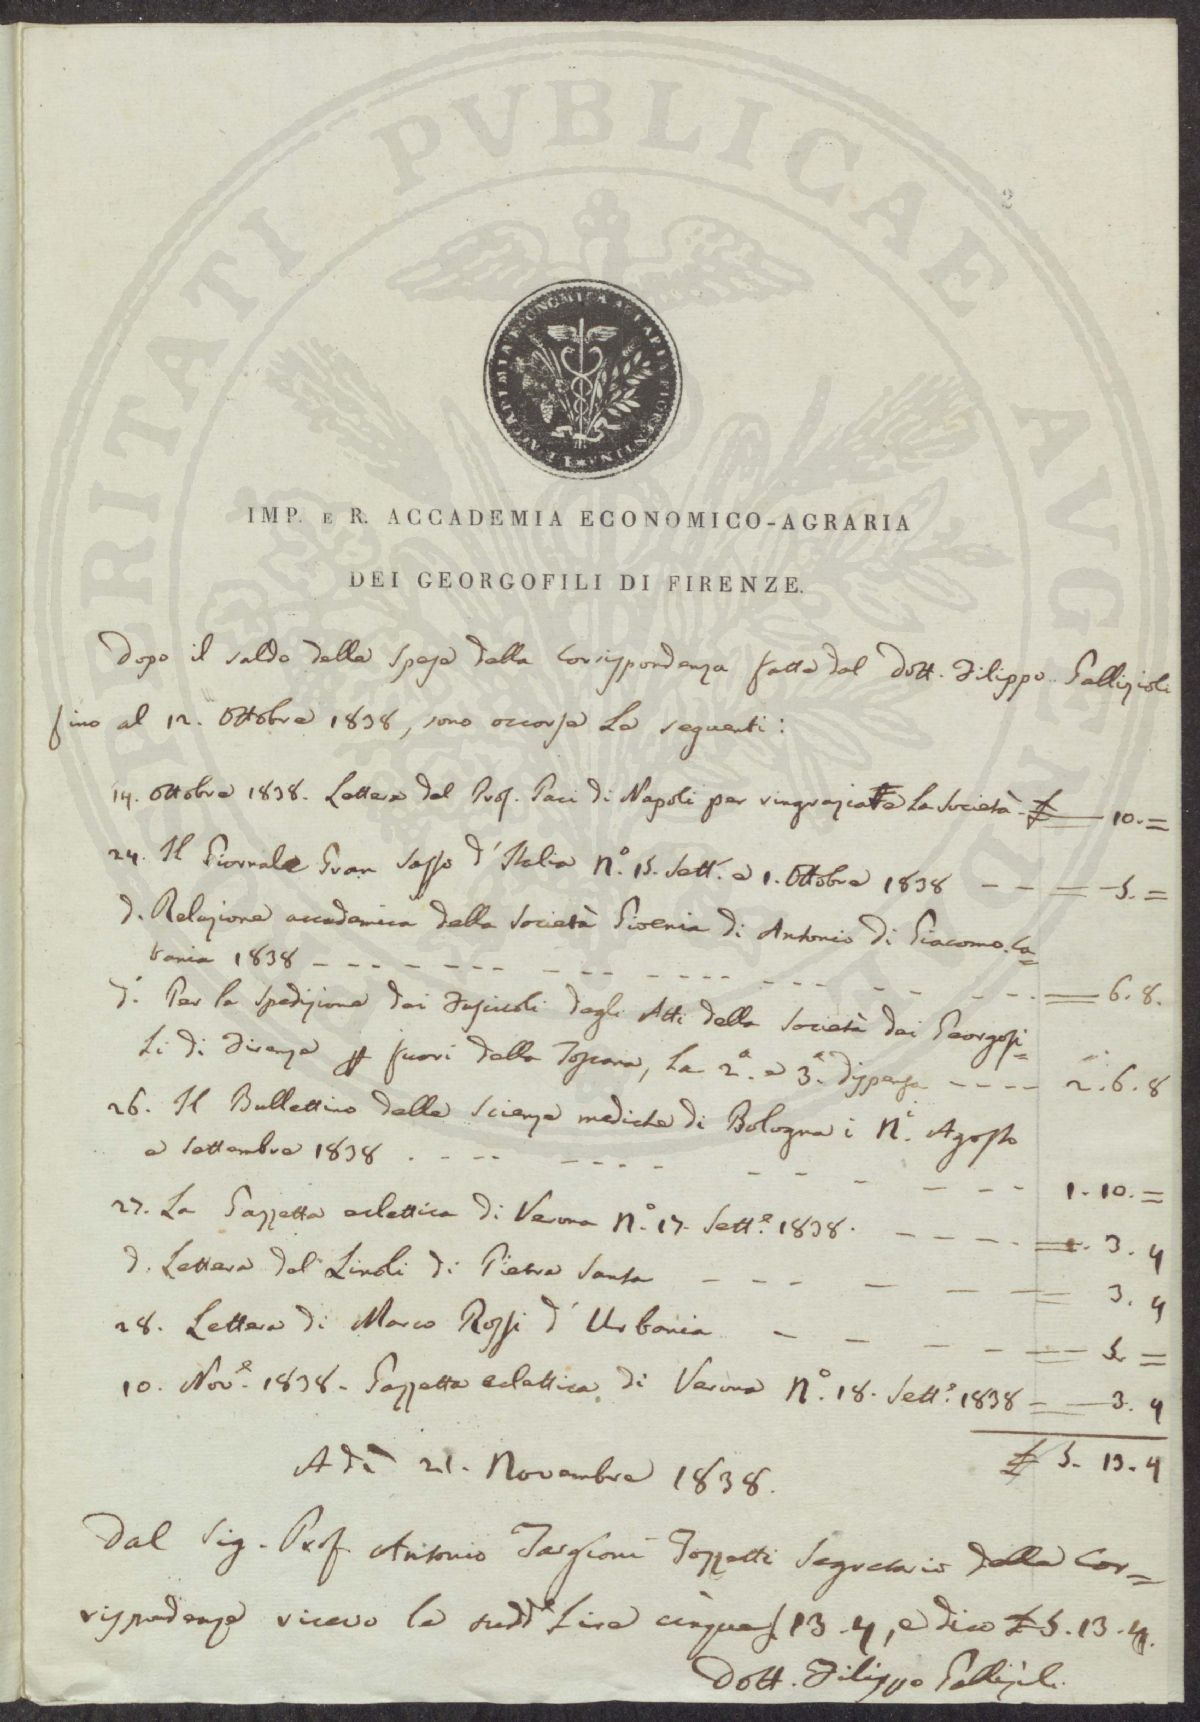 PROSPERITATI PVBLICAE AVGENDAE
2
I E R ACCADEMIA ECONOMICA AGRARIA FIORENTINA
IMP. E R. ACCADEMIA ECONOMICO-AGRARIA
DEI GEORGOFILI DI FIRENZE.
Dopo il saldo delle spese della Corrispondenza fatte dal Dott. Filippo Gallizioli
fino al 12. Ottobre 1838, sono occorse Le seguenti:
14. Ottobre 1838. Lettera del Prof. Paci di Napoli per ringraziare La Società £ 10. =
24. Il Giornale Gran Sasso d'Italia N.° 15. Sett.e e 1. Ottobre 1838 - - = 5. =
d. Relazione accademica della Società Gioenia di Antonio di Giacomo. Ca=
tania 1838 - - - = 6. 8.
d. Per la spedizione dei Fascicoli degli Atti della Società dei Georgofi=
Li di Firenze fuori della Toscana, La 2.a e 3.a dispensa - - - - 2. 6. 8
26. Il Bullettino delle Scienze mediche di Bologna i N.i Agosto
e Settembre 1838 - - - 1. 10. =
27. La Gazzetta eclettica di Verona N.° 17. Sett.e 1838. - - - = 3. 4
d. Lettera del Linoli di Pietra Santa - - - = 3. 4
28. Lettera di Marco Rossi d'Urbania - - - = 5. =
10. Nov.e 1838. Gazzetta eclettica di Verona N.° 18. Sett.e 1838 - = 3. 4
£ 5. 13. 4
Adì 21. Novembre 1838.
Dal Sig. Prof. Antonio Targioni Tozzetti Segretario della Cor=
rispondenza ricevo le sudd.e Lire cinque 13. 4, e dico £ 5. 13. 4.
Dott. Filippo Gallizioli.